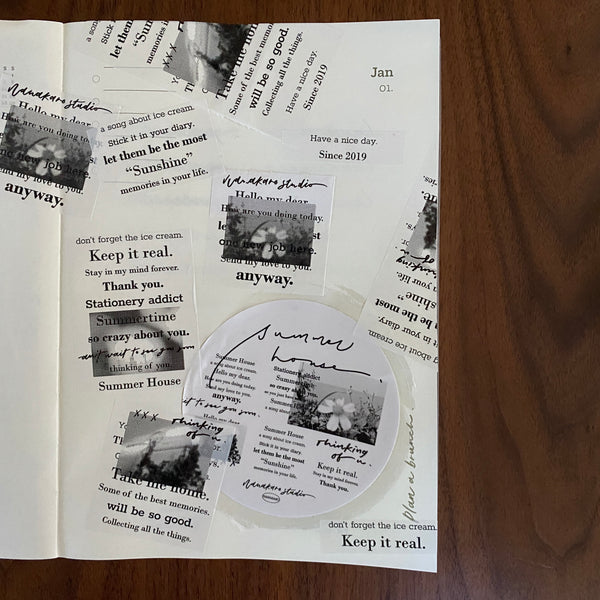 a song
Stick it
let them
"Sunshine"
memories in
xxx
Take me home
Some of the best memories.
will be so good.
Collecting all the things.
Have a nice day.
Since 2019
Jan
01.
Have a nice day.
Since 2019
Nanakaro studio
Hello my dear
How are you doing today
one new job here.
Send my love to you.
anyway.
a song about ice cream.
Stick it in your diary.
let them be the most
"Sunshine"
memories in your life.
Nanakaro studio
Hello my dear
How are you doing today.
one new job here.
Send my love to you.
anyway.
of u.
in your life.
shine"
be the most
in your diary.
about ice cream.
don't forget the ice cream.
Keep it real.
Stay in my mind forever.
Thank you.
Stationery addict
Summertime
so crazy about you.
can't wait to see you soon
thinking of you.
Summer House
summer
house
Summer House
a song about ice cream.
Hello my dear.
How are you doing today.
Send my love to you.
anyway.
t to see you soon.
Hello my dear
Stationery addict
so crazy
Summer
Summer House
a song about ice cream.
let them be the most
"Sunshine"
memories in your life.
thinking
of u.
Keep it real.
Stay in my mind forever.
Thank you.
Nanakaro studio
xxx
thinking
of u.
Take me home.
Some of the best memories.
will be so good.
Collecting all the things.
Plan a brunch
don't forget the ice cream.
Keep it real.